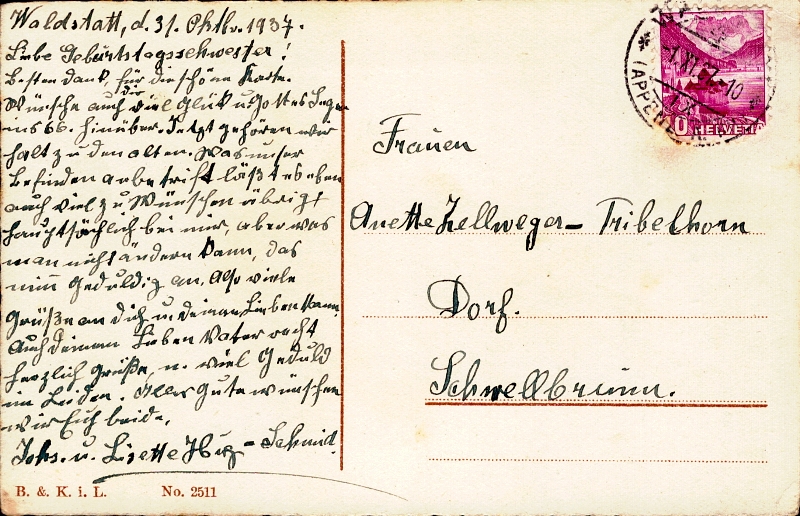 Waldstatt, d. 31. Oktbr. 1937.
Liebe Geburtstagsschwester!
Besten Dank, für die schöne Karte.
Wünsche auch dir viel Glück u. Gottes Segen
ins 66. hinüber. Jetzt gehören wir
halt zu den alten. Was unser
Befinden anbetrifft läßt es eben
auch viel zu Wünschen übrig
hauptsächlich bei mir, aber was
man nicht ändern kann, das
nimm Geduldig an. Also viele
Grüße an dich u. deinen Lieben Mann
Auch deinem Lieben Vater recht
herzlich Grüße, u. viel Geduld
im Leiden. Alles Gute wünschen
wir Euch beide.
Johs. u. Lisette - Schmid.
B. & K. i. L. No. 2511
Frauen
Anette Zellweger - Tribelhorn
Dorf.
Schwellbrunn.
HELVETIA